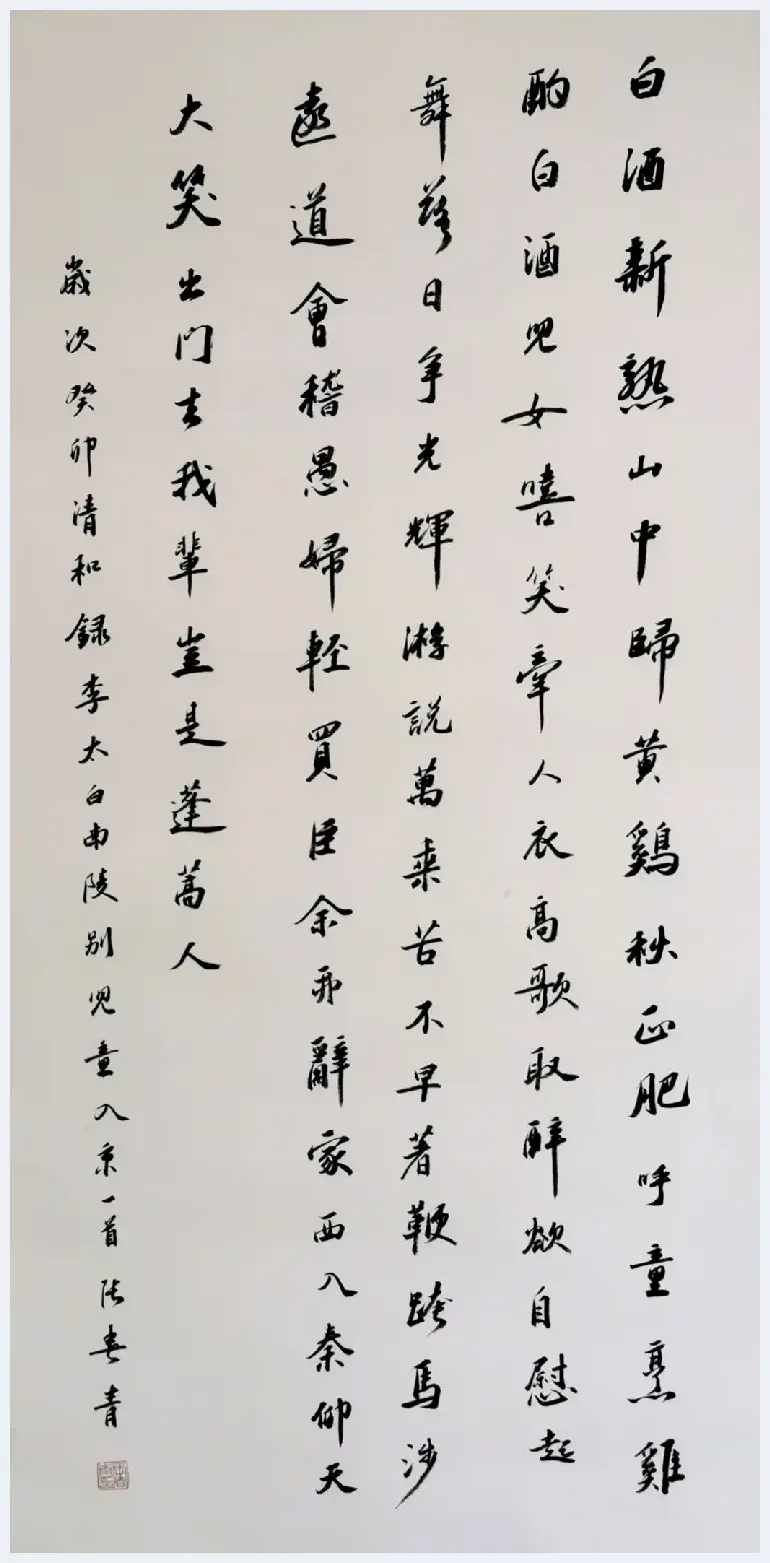 白酒新熟山中歸黄鷄秋正肥呼童烹雞
酌白酒兒女嘻笑牽人衣高歌取醉欲自慰起
舞落日争光輝游説萬乘苦不早著鞭跨馬涉
遠道會稽愚婦輕買臣余亦辭家西入秦仰天
大笑出門去我輩豈是蓬蒿人
歲次癸卯清和録李太白南陵别兒童入京一首張春青